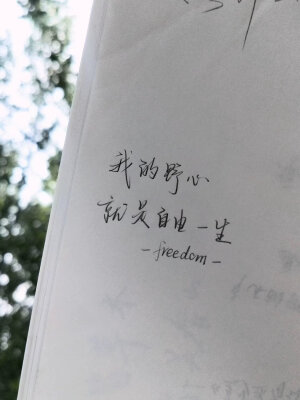 我的野心
就是自由一生
-freedom-